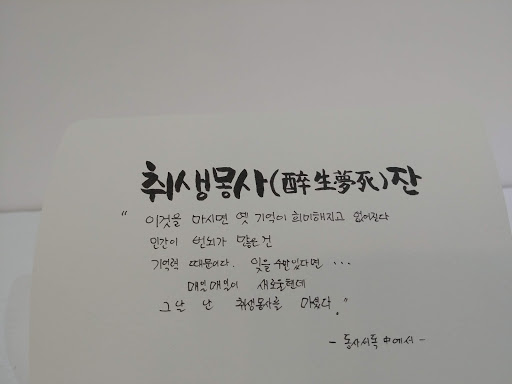 취생몽사(醉生夢死)잔
"이것을 마시면 옛 기억이 희미해지고 없어진다
인간이 번뇌가 많은 건
기억력 때문이다. 잊을 수만 있다면 ...
매일매일이 새로울텐데
그날 난 취생몽사를 마셨다."
- 동사서독 中에서 -